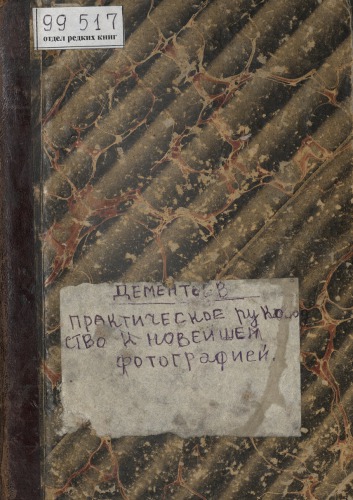 99 517
отдел редких книг
ДЕМЕНТЬЕВ
ПРАКТИЧЕСКОЕ РУКОВО
СТВО К НОВЕЙШЕЙ
ФОТОГРАФИЕЙ.